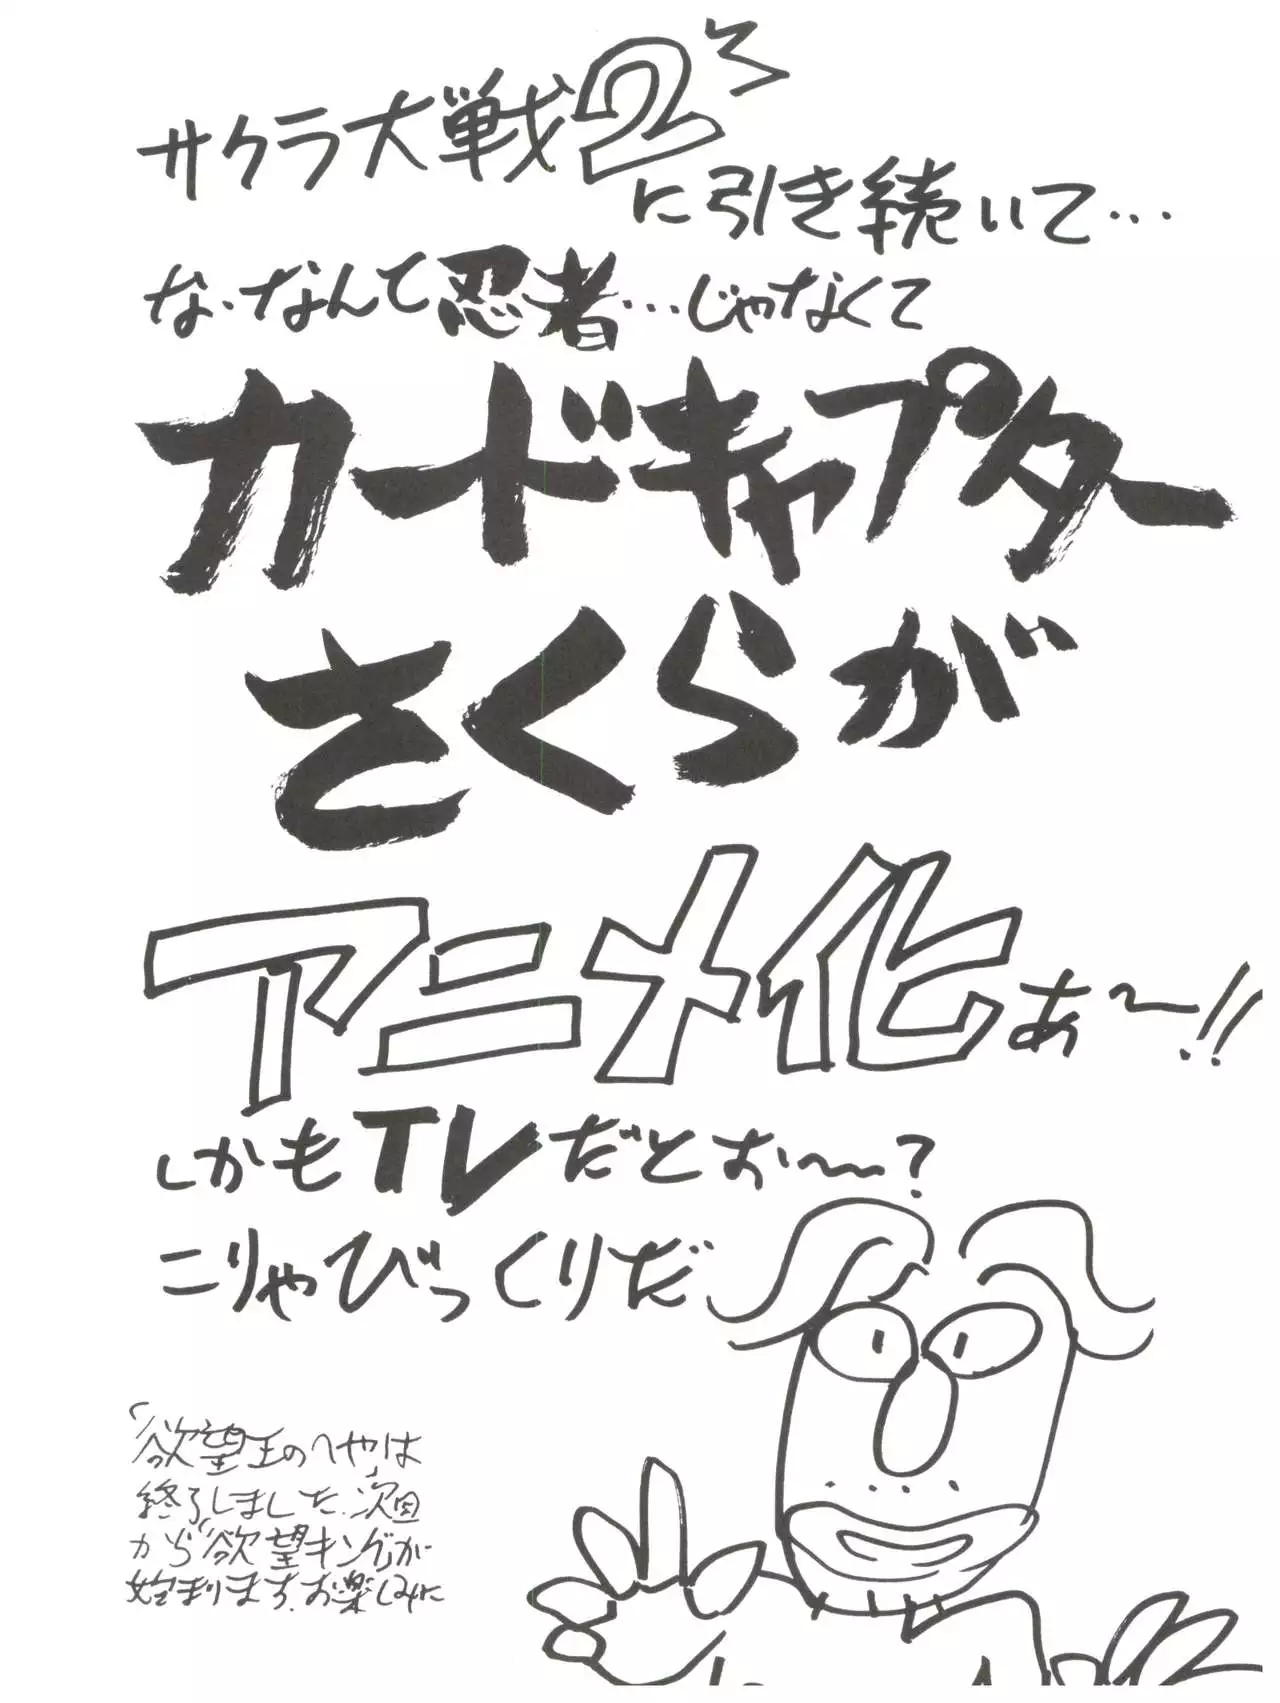 サクラ大戦2に引き続いて…
な、なんて忍者…じゃなくて
カードキャプター
さくらが
アニメ化ぁ〜!!
しかもTVだとぉ〜?
こりゃびっくりだ
「欲望王のへや」は
終了しました。次回
から「欲望キング」が
始まります。お楽しみに